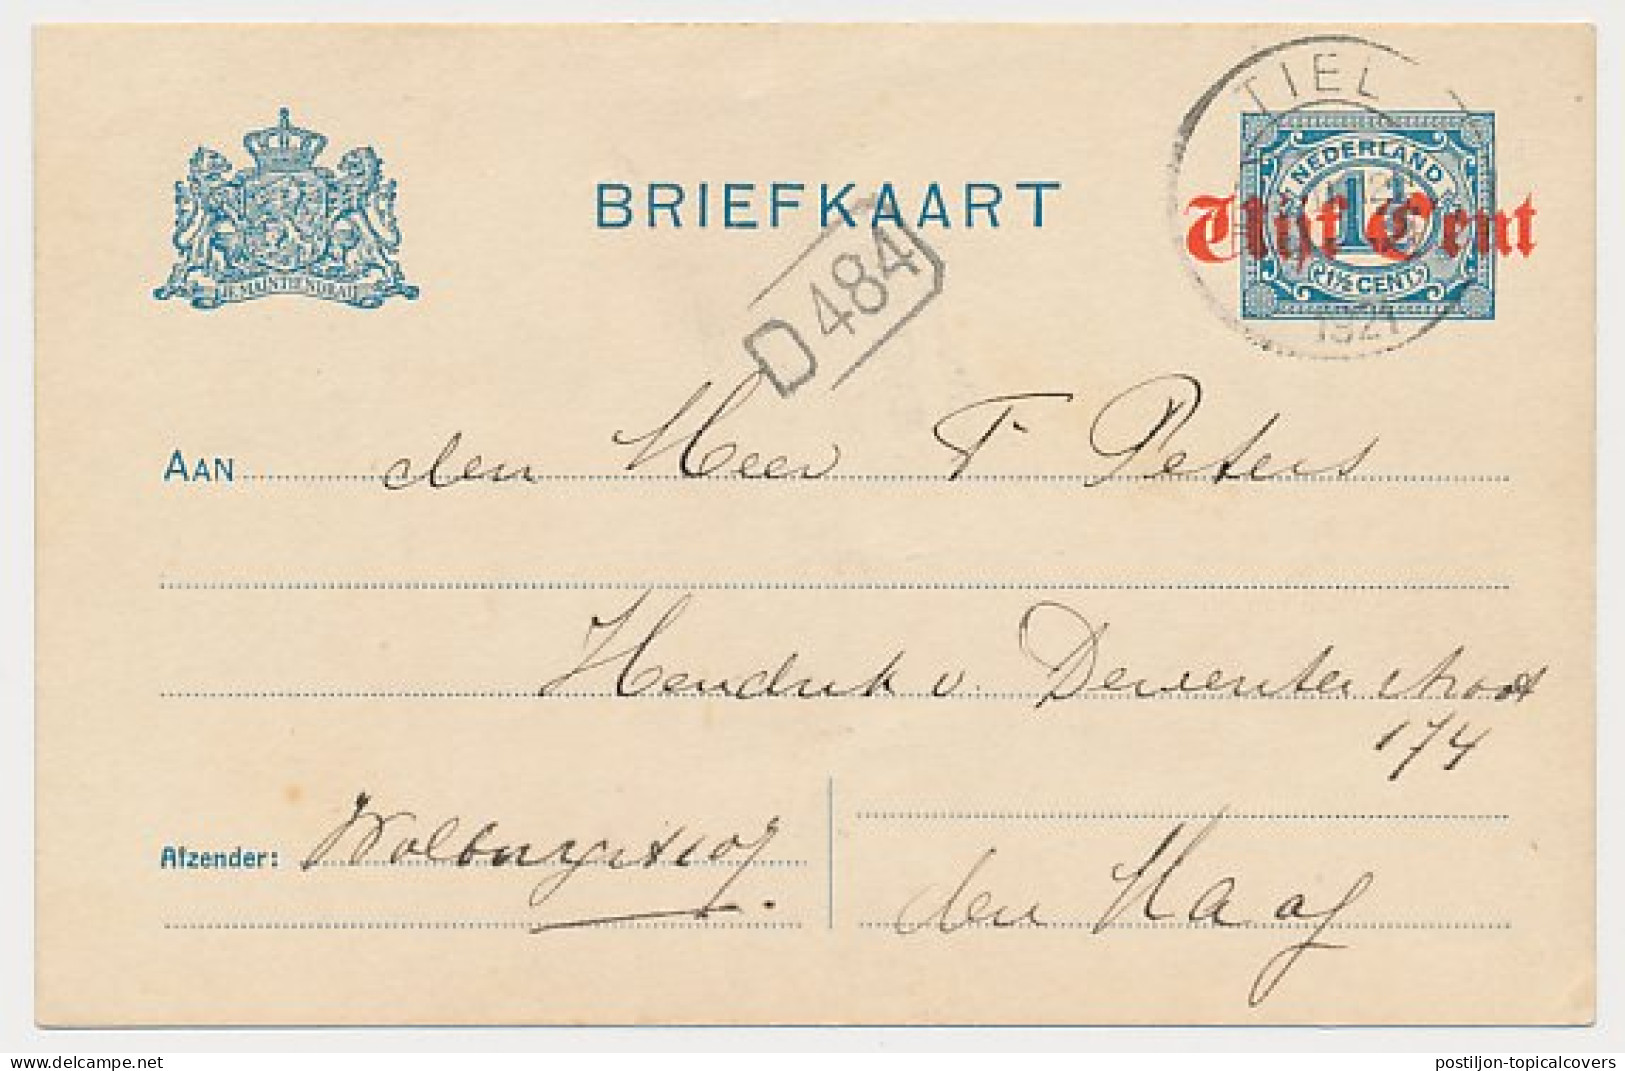 TIEL
BRIEFKAART
NEDERLAND
Vijf Cent
1½
1½ CENT
1921
JE MAINTIENDRAI
D 484
AAN den Heer F Peters
Hendrik v. Deventerstraat
174
Afzender:
den Haag
delcampe.net
postiljon-topicalcovers